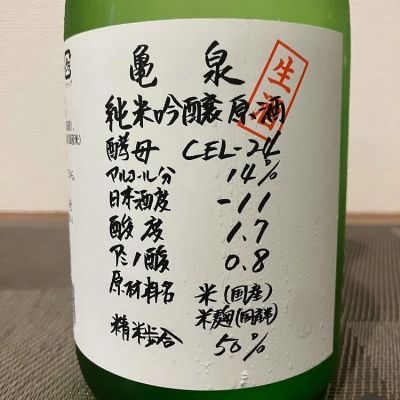 亀泉
生酒
純米吟醸原酒
酵母 CEL-24
アルコール分 14%
日本酒度 -11
酸度 1.7
アミノ酸 0.8
原材料名 米(国産)
米麹(国産米)
精米歩合 50%